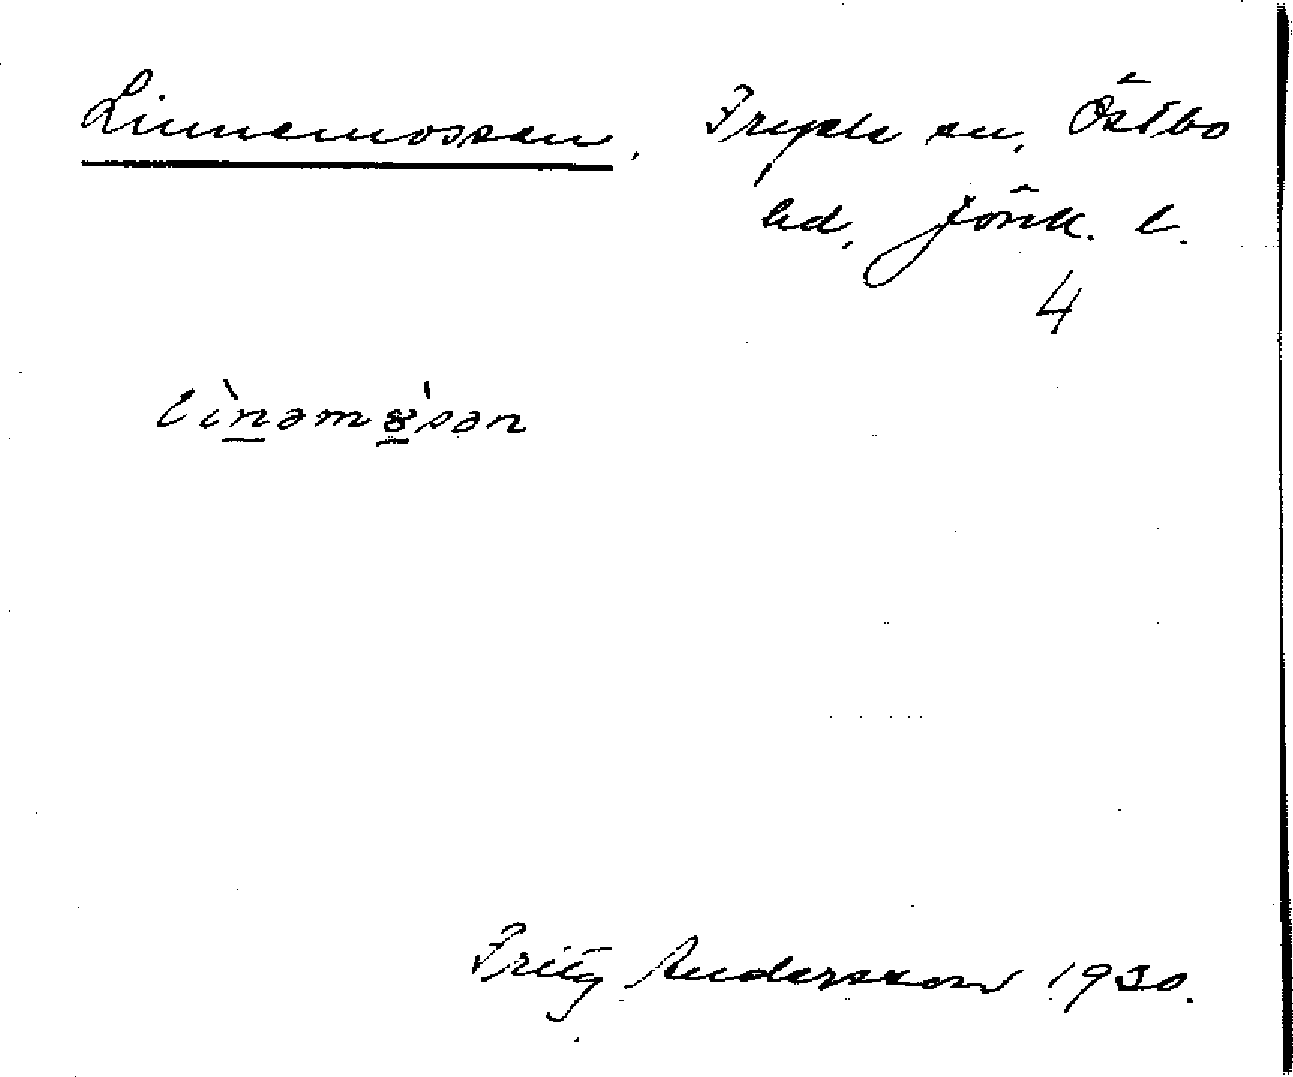 Linnemossen. Fryele sn, Östbo
hd, Jönk. l.
4
lìnəmɷ'sən
Fritz Andersson 1930.